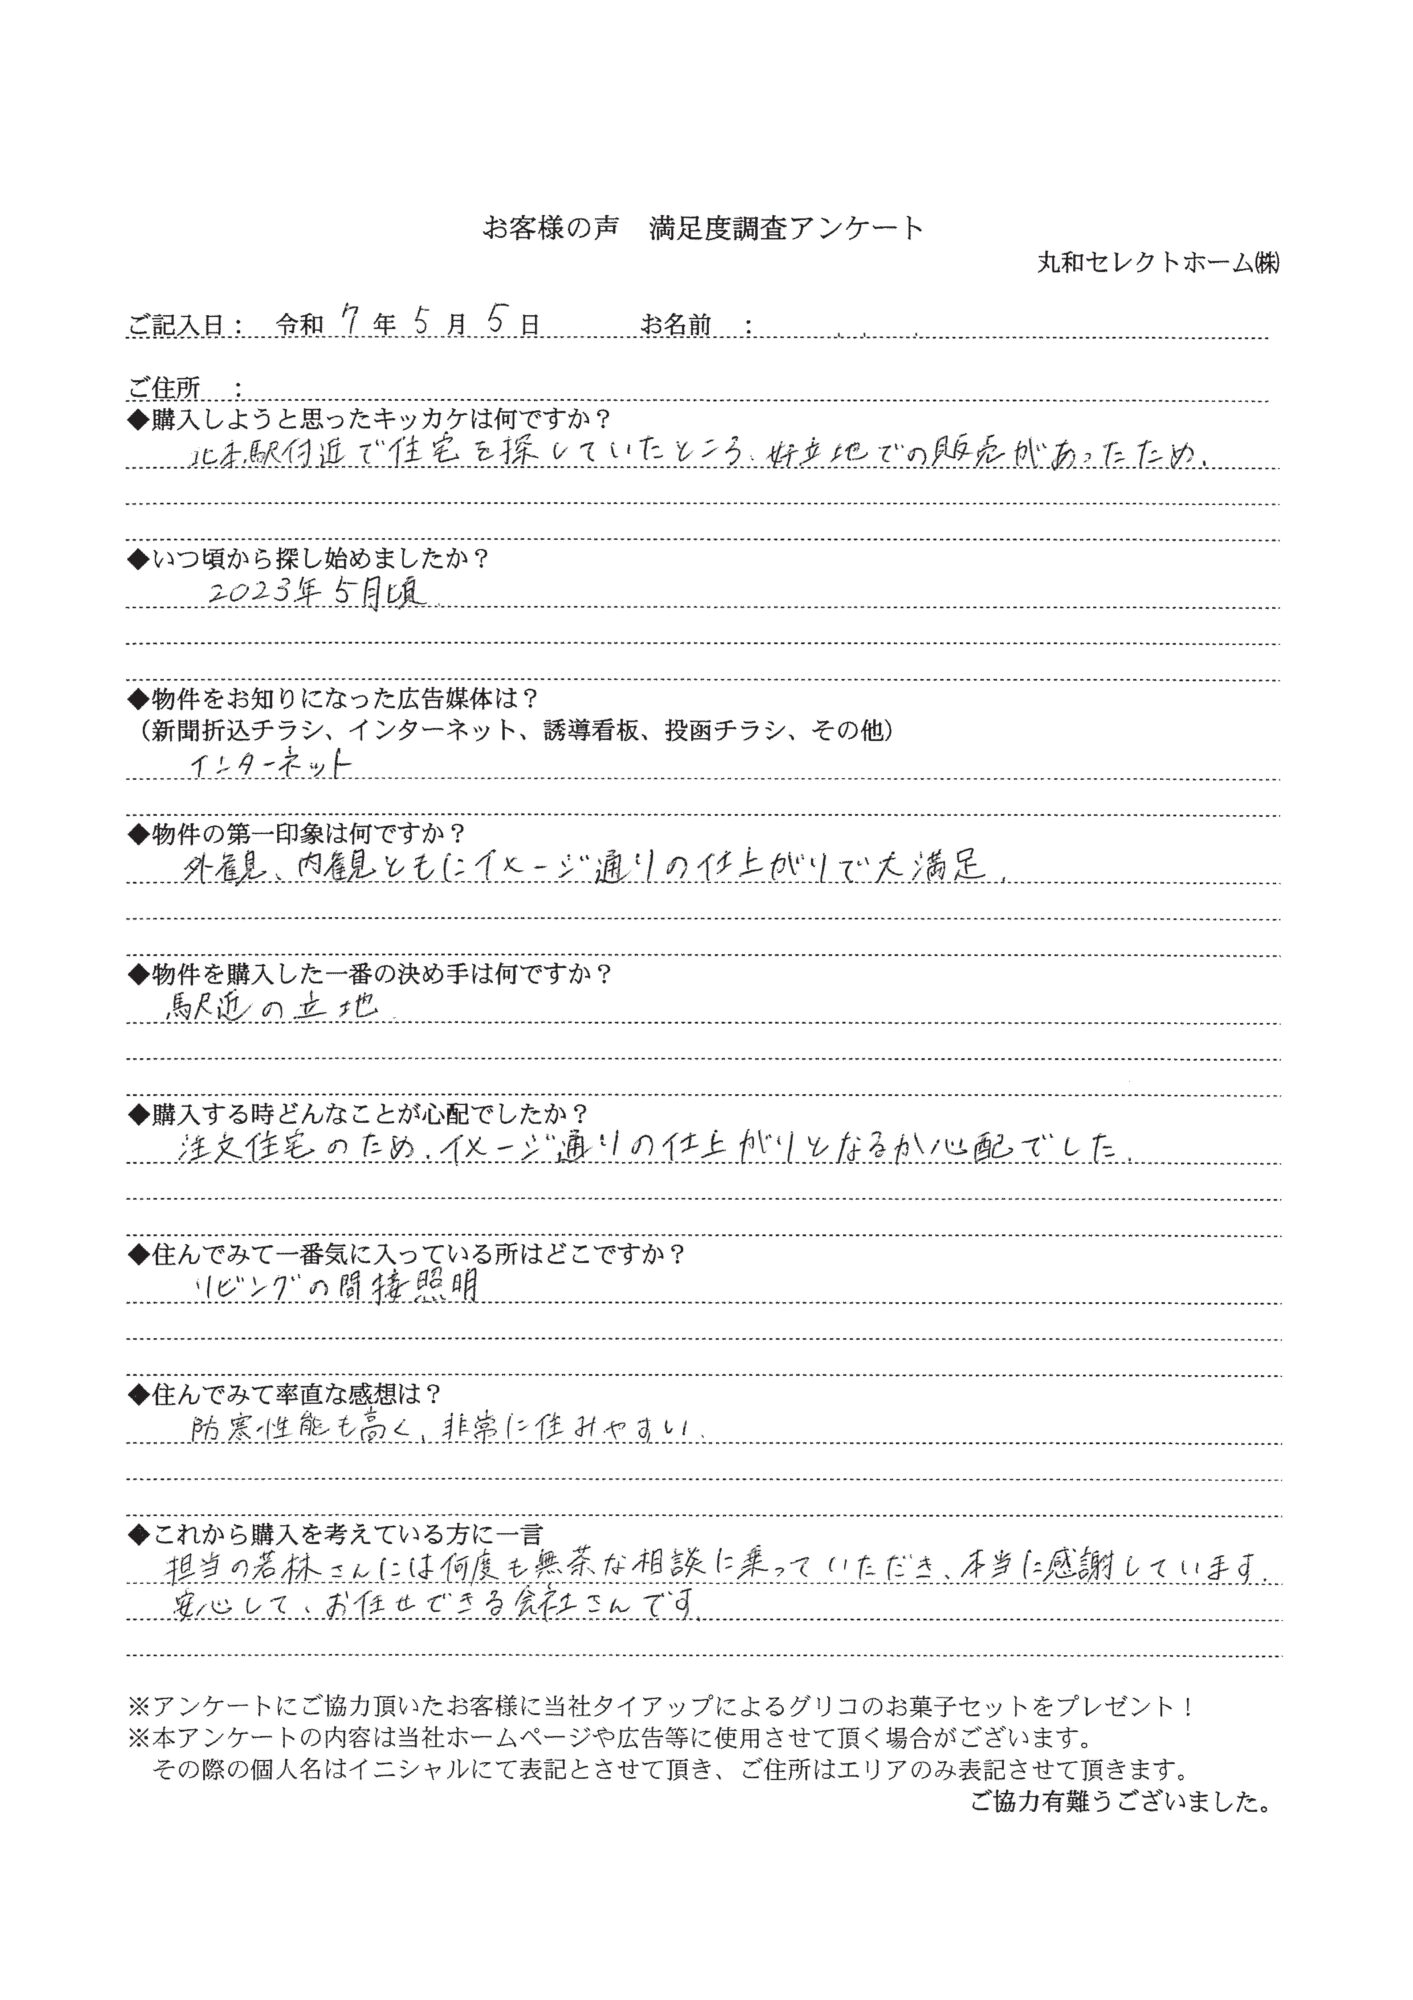 お客様の声　満足度調査アンケート
丸和セレクトホーム㈱
ご記入日：　令和 7 年 5 月 5 日　　　お名前　：
ご住所　：
◆購入しようと思ったキッカケは何ですか？
北本駅付近で住宅を探していたところ、好立地での販売があったため。
◆いつ頃から探し始めましたか？
2023年5月頃
◆物件をお知りになった広告媒体は？
（新聞折込チラシ、インターネット、誘導看板、投函チラシ、その他）
インターネット
◆物件の第一印象は何ですか？
外観、内観ともにイメージ通りの仕上がりで大満足。
◆物件を購入した一番の決め手は何ですか？
駅近の立地
◆購入する時どんなことが心配でしたか？
注文住宅のため、イメージ通りの仕上がりとなるか心配でした。
◆住んでみて一番気に入っている所はどこですか？
リビングの間接照明
◆住んでみて率直な感想は？
防寒性能も高く、非常に住みやすい。
◆これから購入を考えている方に一言
担当の若林さんには何度も無茶な相談に乗っていただき、本当に感謝しています。
安心して、お任せできる会社さんです。
※アンケートにご協力頂いたお客様に当社タイアップによるグリコのお菓子セットをプレゼント！
※本アンケートの内容は当社ホームページや広告等に使用させて頂く場合がございます。
その際の個人名はイニシャルにて表記とさせて頂き、ご住所はエリアのみ表記させて頂きます。
ご協力有難うございました。